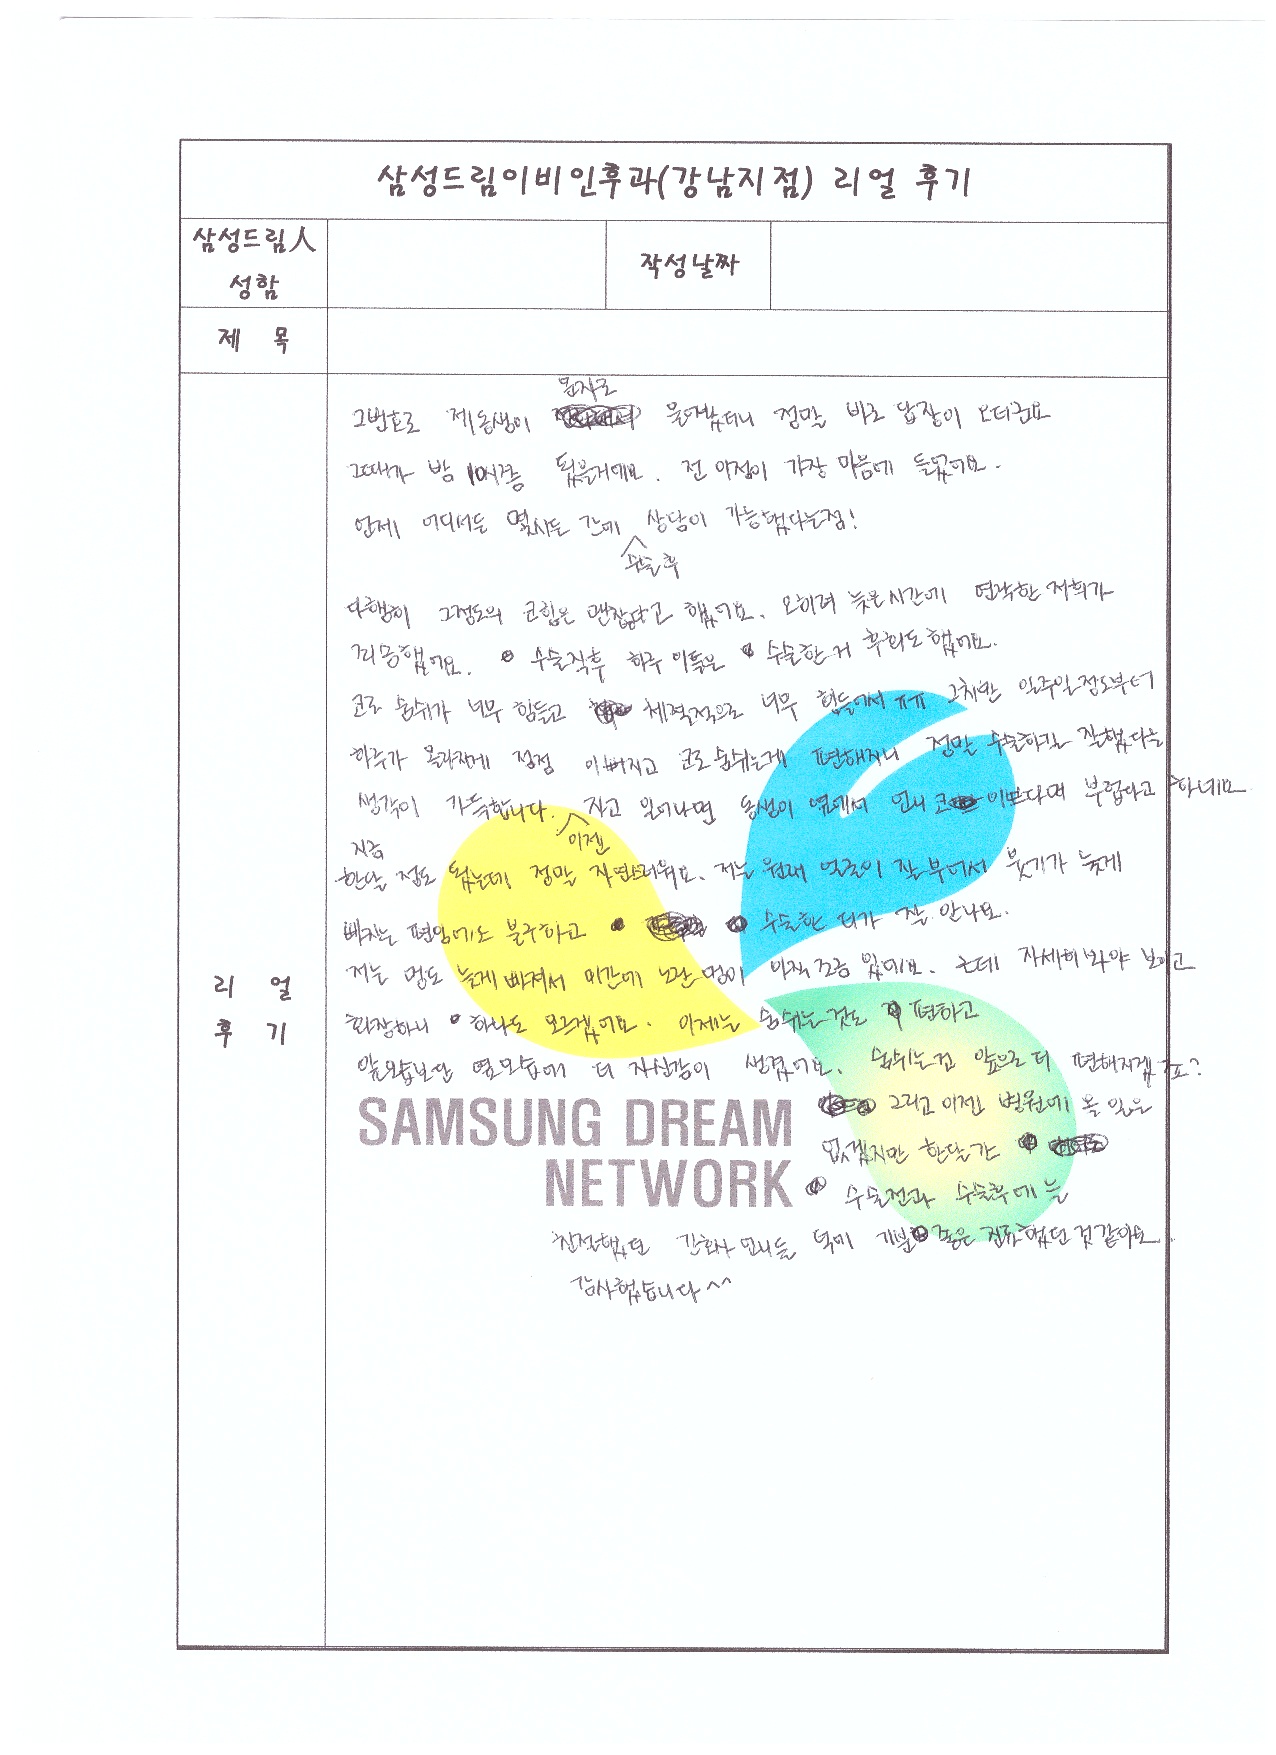 삼성드림이비인후과(강남지점) 리얼 후기
삼성드림人
성함
작성날짜
제 목
리 얼
후 기
문자로
그번호로 제동생이 물어봤더니 정말 바로 답장이 오더군요
그때가 밤 10시쯤 됐을거에요. 전 이점이 가장 마음에 들었어요.
언제 어디서든 몇시든 간에 상담이 가능했다는점!
수술후
다행히 그정도의 코힘은 괜찮다고 했어요. 오히려 늦은시간에 연락한 저희가
죄송했어요. 수술직후 하루 이틀은 수술한거 후회도했어요.
코로 숨쉬기 너무 힘들고 체력적으로 너무 힘들어서 ㅠㅠ 그치만 일주일정도부터
하루가 몰라보게 점점 이뻐지고 코로숨쉬는게 편해지니 정말 수술하길 잘했다는
생각이 가득합니다. 자고 일어나면 동생이 옆에서 언니 코 이쁘다며 부럽다고 하네요
이젠
지금
한달 정도 됐는데 정말 자연스러워요. 저는 원래 얼굴이 잘부어서 붓기가 늦게
빠지는 편임에도 불구하고 수술한 티가 잘 안나요.
저는 멍도 늦게 빠져서 미간에 노란 멍이 아직 조금 있어요. 근데 자세히봐야 보이고
화장하니 하나도 모르겠어요. 이제는 숨쉬는것도 편하고
앞모습보단 옆모습에 더 자신감이 생겼어요. 숨쉬는건 앞으로 더 편해지겠죠?
그리고 이젠 병원에 올 일은
없겠지만 한달간
수술전과 수술후에 늘
친절했던 간호사 언니들 덕에 기분 좋은 진료했던 것같아요.
감사했습니다^^
SAMSUNG DREAM
NETWORK